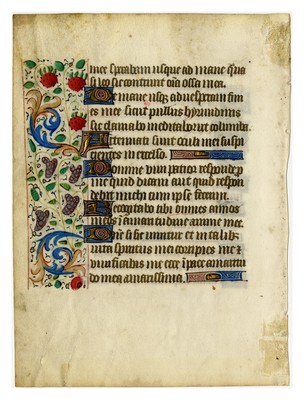 mee sperabam usque ad mane qua
si leo sic contrivit oīa ossa mea.
De mane usq; ad vesperam fini
es me sicut pullus hyrundinis
sic clamabo meditabor ut columba.
Attenuati sunt oculi mei suspi
cientes in excelso.
Domine vim patior responde p
me quid dicam aut quid respon
debit michi cum ipse fecerim.
Recogitabo tibi omnes annos
meos ī amaritudine anime mee.
Dn̄e si sic vivitur et in talib
vita spiritus mei corripies me z
vivificabis me ecce ī pace amaritu
do mea amarissima.